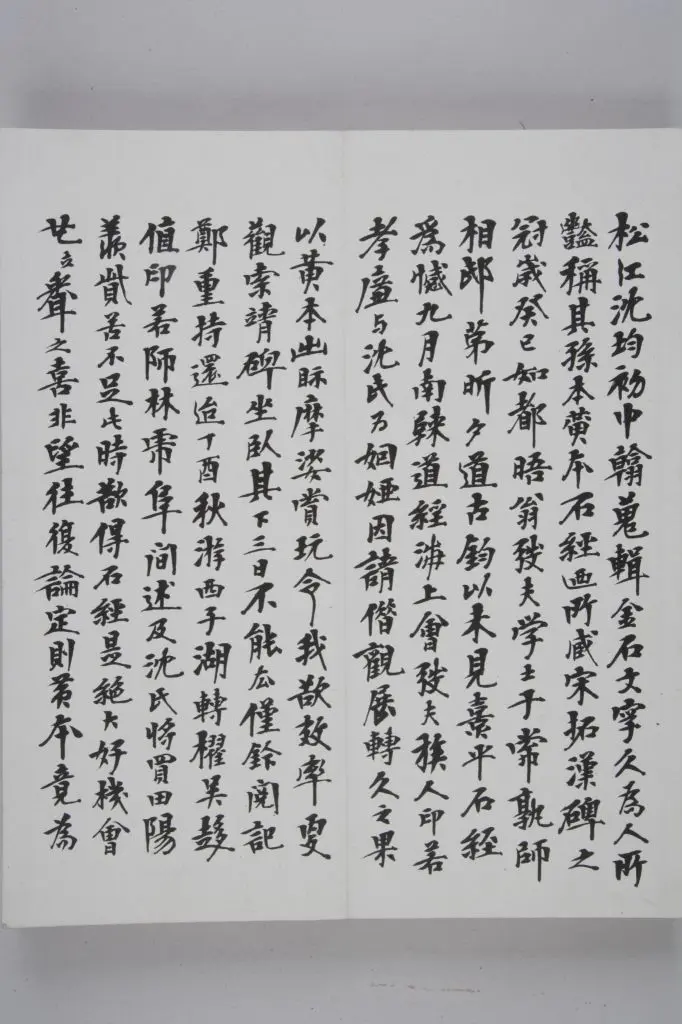 松江沈均初中翰蒐輯金石文字久為人所
豔稱其孫本黃本石經西所臧宋拓漢碑之
冠歲癸巳如都晤翁弢夫学士于常孰師
相邸第昕夕道古鈞以未見熹平石經
為憾九月南歸道經海上會弢夫族人印若
孝廉与沈氏为姻婭因請偕觀展轉久之果
以黃本出眎摩娑賞玩令我欲效率更
觀索靖碑坐臥其下三日不能厺僅鈐閱記
鄭重持還迨丁酉秋游西子湖轉櫂吳趨
值印若師林帟阜间述及沈氏將買田陽
羨貲苦不足此時欲得石經是絕大好機會
聲之喜非望往復論定則黃本竟為